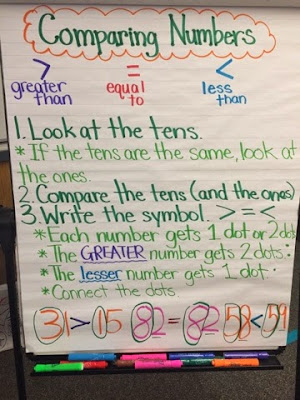 Comparing Numbers
> = <
greater than equal to less than
1. Look at the tens.
* If the tens are the same, look at
the ones.
2. Compare the tens (and the ones)
3. Write the symbol. > = <
* Each number gets 1 dot or 2 dots
* The GREATER number gets 2 dots :
* The lesser number gets 1 dot ·
* Connect the dots.
31 > 15 82 = 82 58 < 59